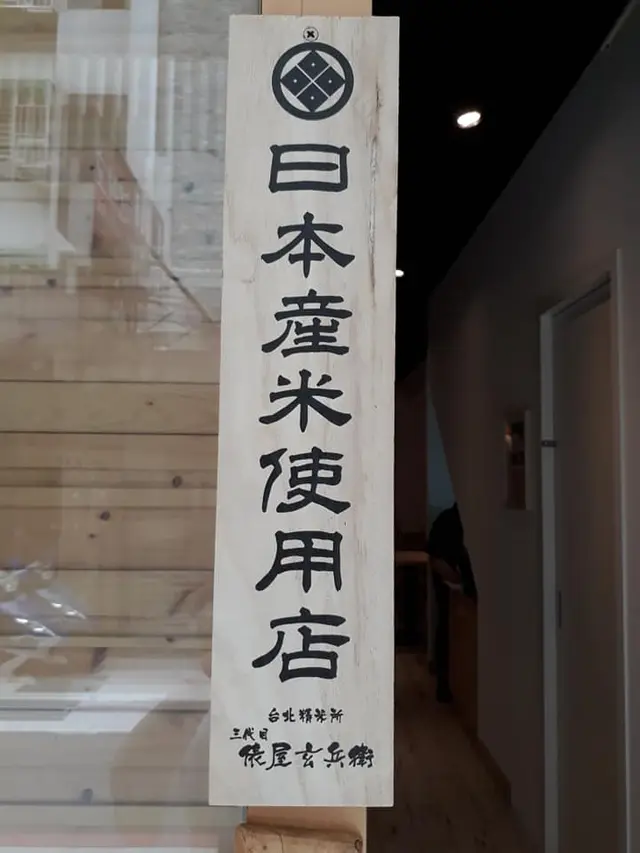 日本産米使用店
台北精米所
三代目
俵屋玄兵衛